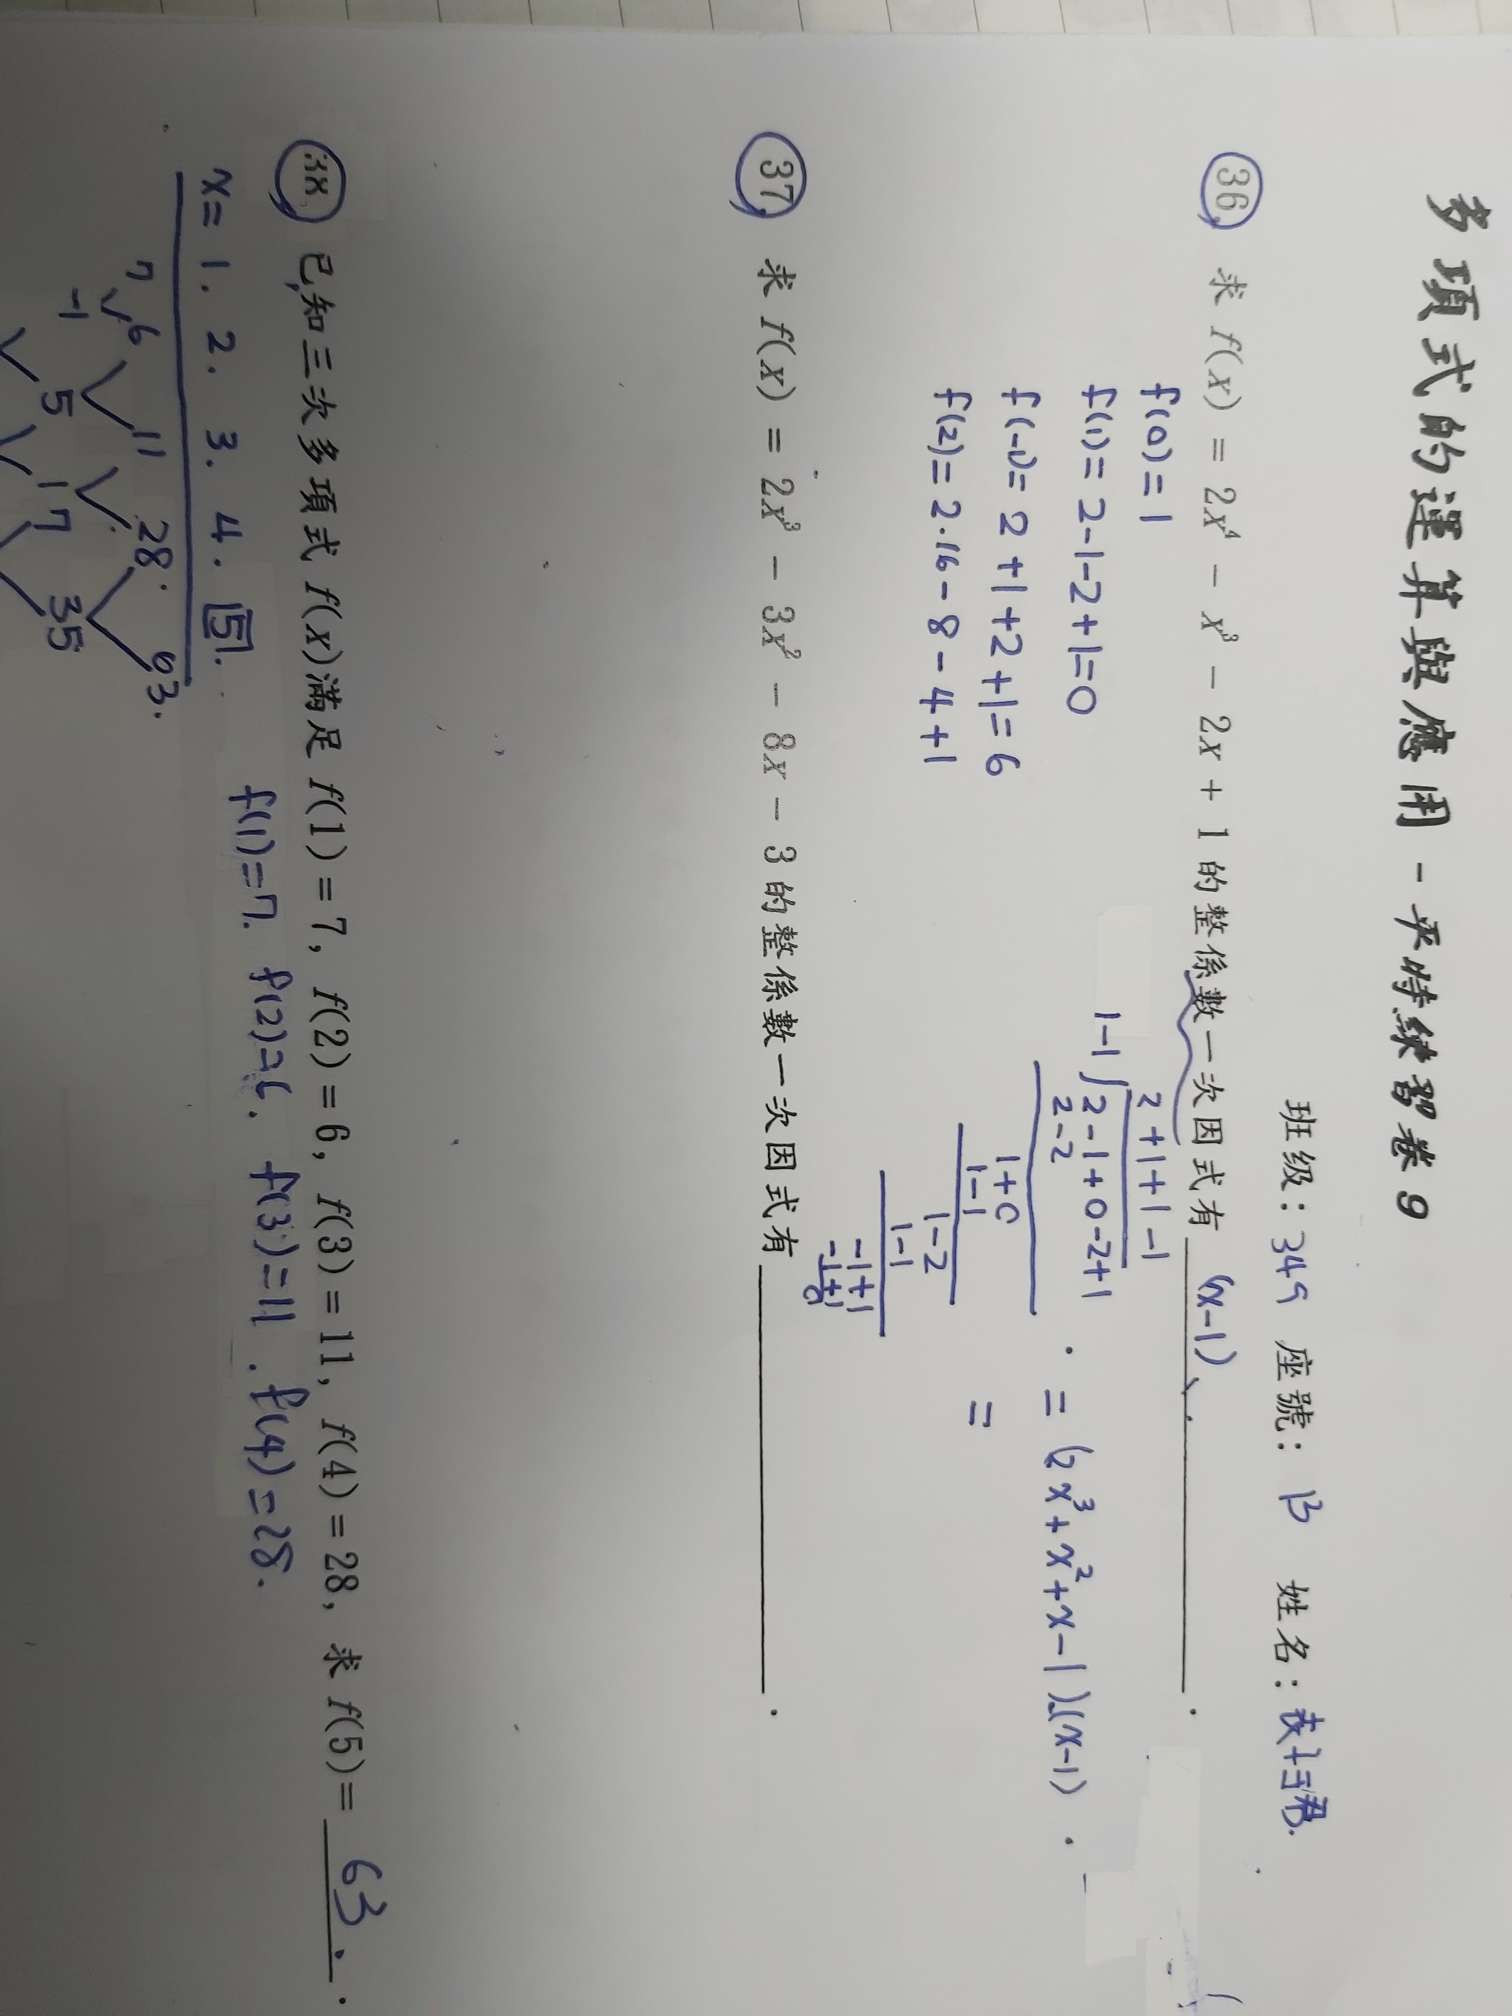 多項式的運算與應用-平特練習卷 9
班級：349 座號：13 姓名：
36. 求 f(x) = 2x⁴ - x³ - 2x + 1 的整係數一次因式有 (x-1)、.
f(0)=1
f(1)=2-1-2+1=0
f(-1)=2+1+2+1=6
f(2)=2·16-8-4+1
2+1+1-1
1-1 2-1+0-2+1
2-2
1+0
1-1
1-2
1-1
-1+1
-1+1
0
= (2x³+x²+x-1)(x-1).
=
37. 求 f(x) = 2x³ - 3x² - 8x - 3 的整係數一次因式有 .
38. 已知三次多項式 f(x)滿足 f(1)=7, f(2)=6, f(3)=11, f(4)=28, 求 f(5)= 63 .
f(1)=7. f(2)=6. f(3)=11. f(4)=28.
x= 1. 2. 3. 4. 5.
7 6 11 28. 63.
-1 5 17 35